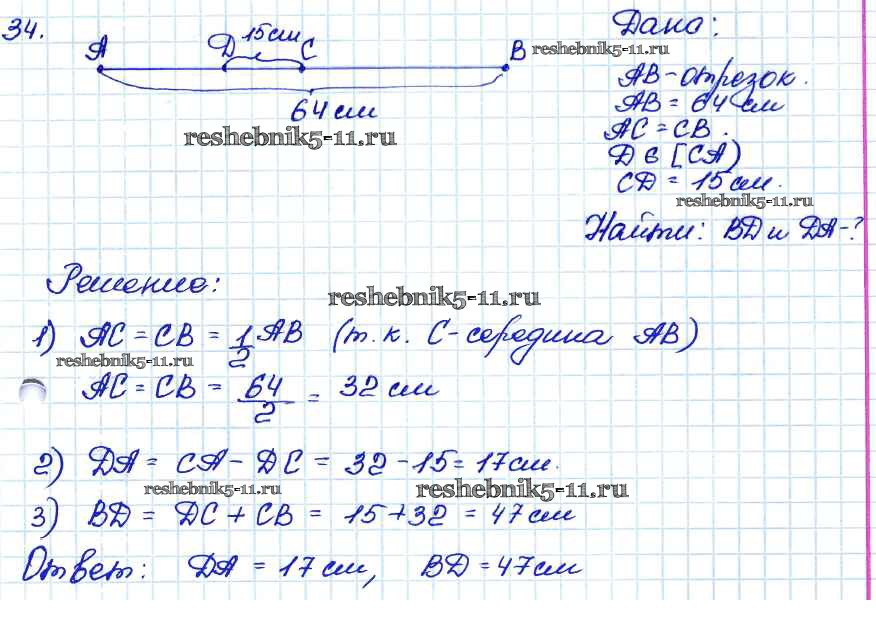 34.
A D 15 см C B
64 см
reshebnik5-11.ru
Дано:
reshebnik5-11.ru
AB - отрезок.
AB = 64 см
AC = CB.
D ∈ [CA)
CD = 15 см.
reshebnik5-11.ru
Найти: BD и DA - ?
Решение:
reshebnik5-11.ru
1) AC = CB = 1/2 AB (т.к. C - середина AB)
reshebnik5-11.ru
AC = CB = 64/2 = 32 см
2) DA = CA - DC = 32 - 15 = 17 см.
reshebnik5-11.ru reshebnik5-11.ru
3) BD = DC + CB = 15 + 32 = 47 см
Ответ: DA = 17 см, BD = 47 см